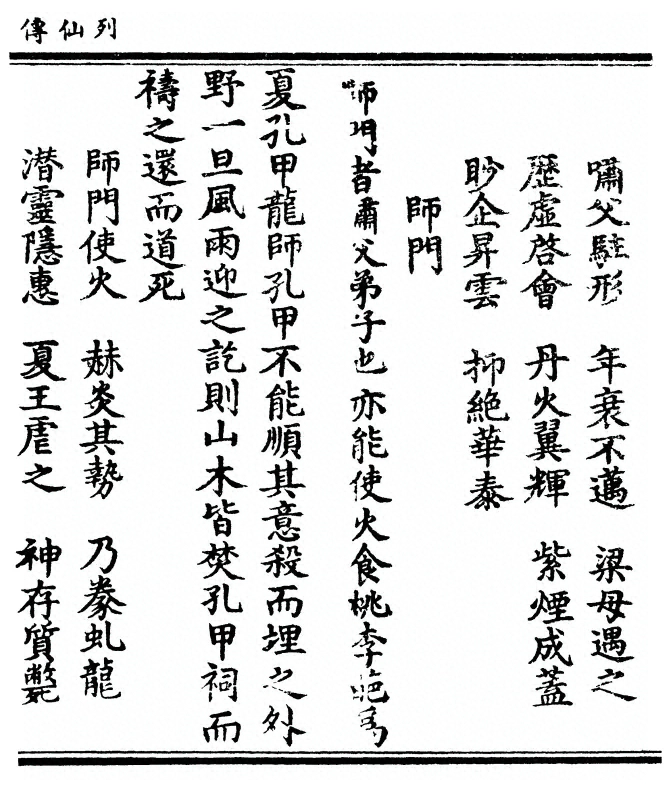 列仙傳
嘯父駐形　年衰不邁　梁母遇之
歷虛啓會　丹火翼輝　紫煙成蓋
眇企昇雲　抑絶華泰
師門
師門者嘯父弟子也亦能使火食桃李葩爲
夏孔甲龍師孔甲不能順其意殺而埋之外
野一旦風雨迎之訖則山木皆焚孔甲祠而
禱之還而道死
師門使火　赫炎其勢　乃豢虬龍
潜靈隱惠　夏王虐之　神存質斃